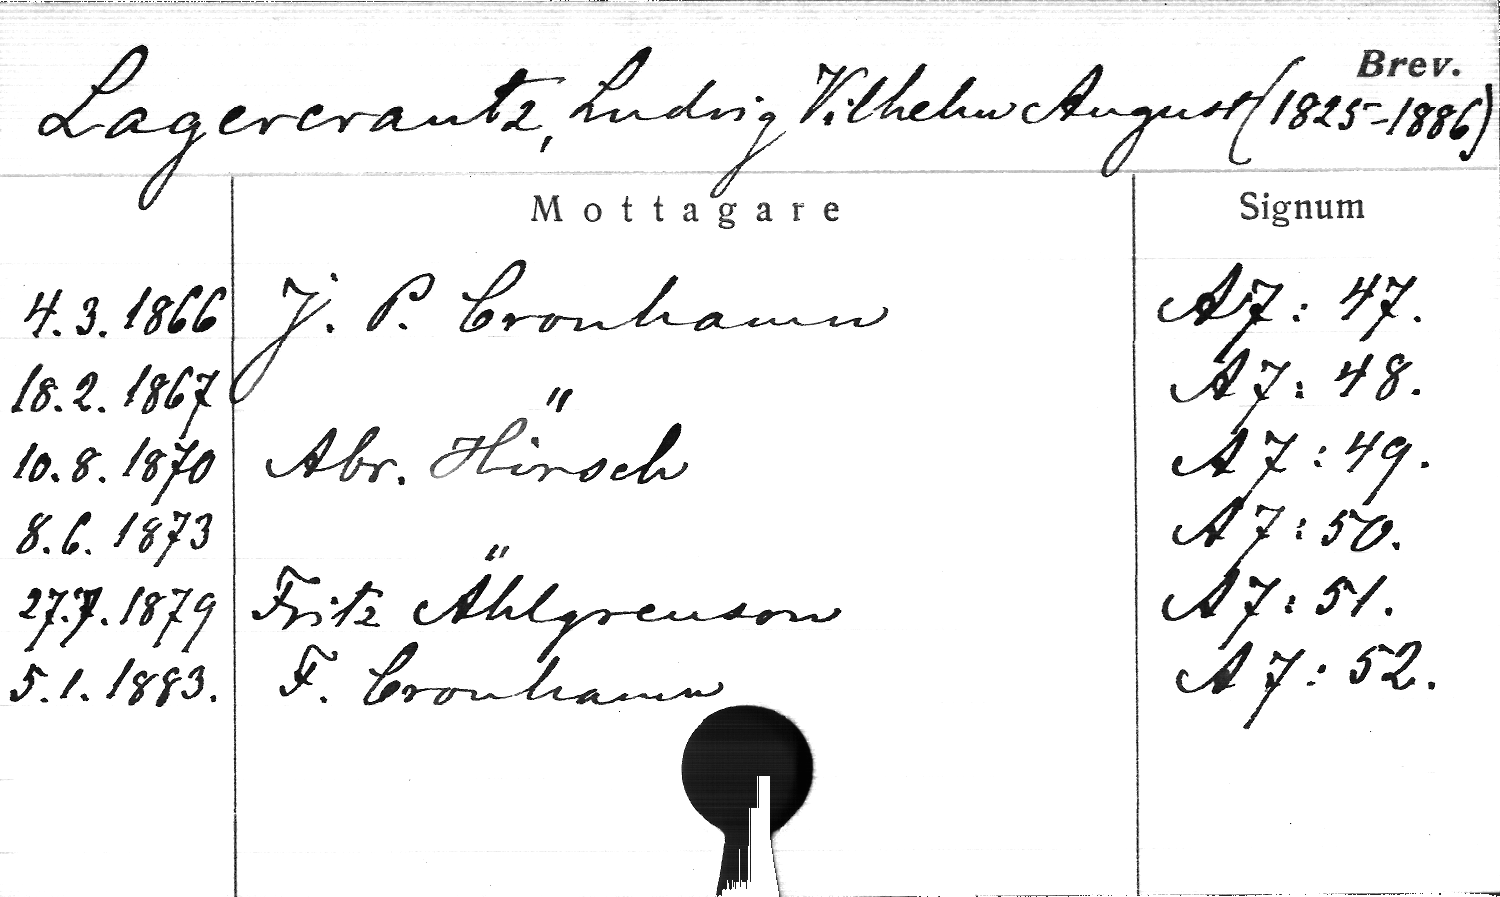 Brev.
Lagercrantz, Ludvig Vilhelm August (1825-1886)
Mottagare Signum
4.3.1866 J. P. Cronhamn A7: 47.
18.2.1867 " A7: 48.
10.8.1870 Abr. Hirsch A7: 49.
8.6.1873 " A7: 50.
27.7.1879 Fritz Ahlgrenson A7: 51.
5.1.1883. F. Cronhamn A7: 52.